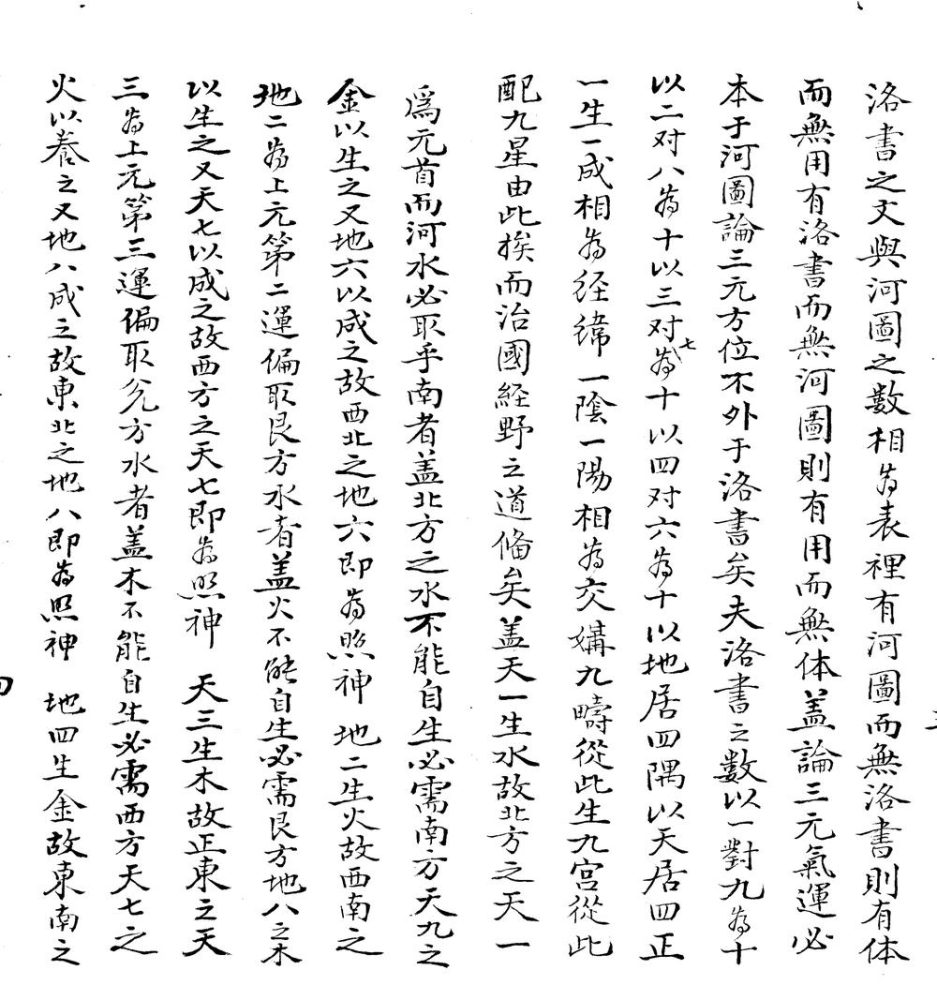 洛書之文與河圖之數相為表裡有河圖而無洛書則有体
而無用有洛書而無河圖則有用而無体盖論三元氣運必
本于河圖論三元方位不外于洛書矣夫洛書之數以一對九為十
以二对八為十以三对七為十以四对六為十以地居四隅以天居四正
一生一成相為経緯一陰一陽相為交媾九疇從此生九宮從此
配九星由此挨而治國経野之道俻矣盖天一生水故北方之天一
為元首而河水必取乎南者盖北方之水不能自生必需南方天九之
金以生之又地六以成之故西北之地六即為照神 地二生火故西南之
地二為上元第二運偏取艮方水者盖火不能自生必需艮方地八之木
以生之又天七以成之故西方之天七即為照神 天三生木故正東之天
三為上元第三運偏取兌方水者盖木不能自生必需西方天七之
火以養之又地八成之故東北之地八即為照神 地四生金故東南之